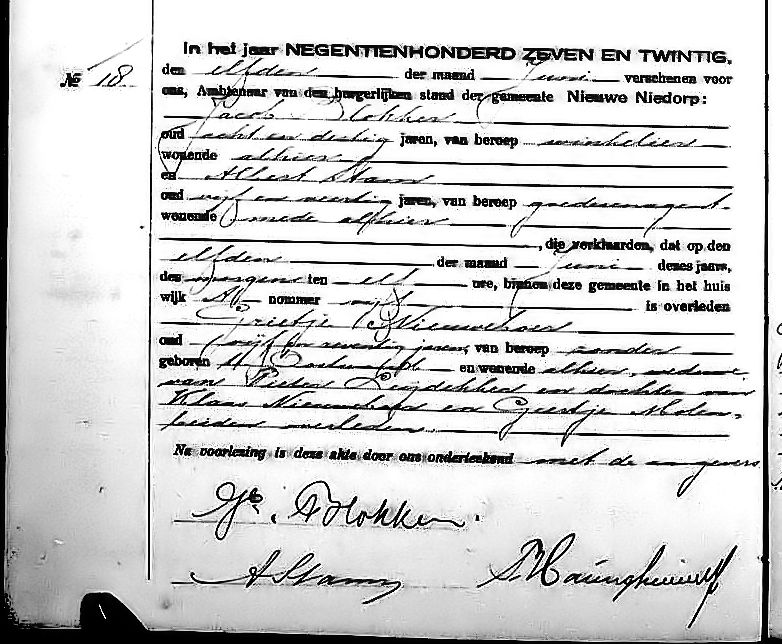 In het jaar NEGENTIENHONDERD ZEVEN EN TWINTIG,
№ 18.
den elfden der maand Juni verschenen voor
ons, Ambtenaar van den burgerlijken stand der gemeente Nieuwe Niedorp:
Jacob Blokker
oud acht en dertig jaren, van beroep winkelier
wonende alhier
en Albert Stam
oud vijf en veertig jaren, van beroep goederenagent
wonende mede alhier
, die verklaarden, dat op den
elfden der maand Juni dezes jaars,
des morgens ten elf ure, binnen deze gemeente in het huis
wijk A nommer is overleden
Grietje Nieuweboer
oud vijf en zeventig jaren, van beroep zonder
geboren en wonende alhier, weduwe
van Pieter en dochter van
Klaas Nieuweboer en Geertje Molen=
beiden overleden.
Na voorlezing is deze akte door ons onderteekend met de aangevers
Jb. Blokker.
A Stam